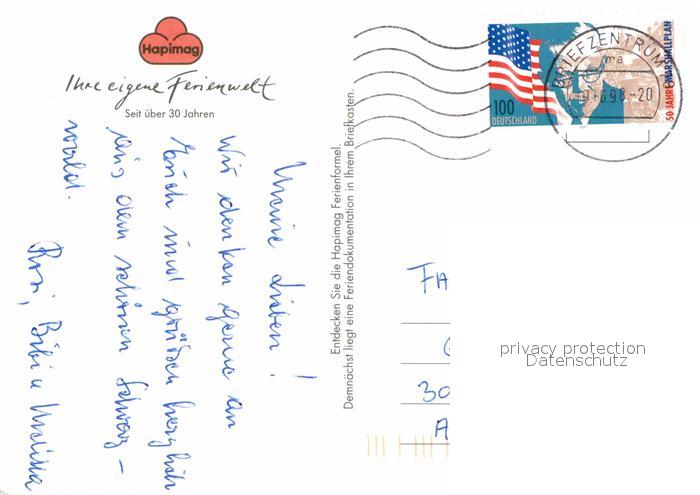 Hapimag
Ihre eigene Ferienwelt
Seit über 30 Jahren
Meine Lieben!
Wir denken gerne an
Euch und grüßen herzlich
aus dem schönen Schwarz-
wald.
Rosi, Bibi u
Entdecken Sie die Hapimag Ferienformel.
Demnächst liegt eine Feriendokumentation in Ihrem Briefkasten.
100
DEUTSCHLAND
50 JAHRE MARSHALLPLAN
BRIEFZENTRUM
6.98-20
FA
30
A
privacy protection
Datenschutz